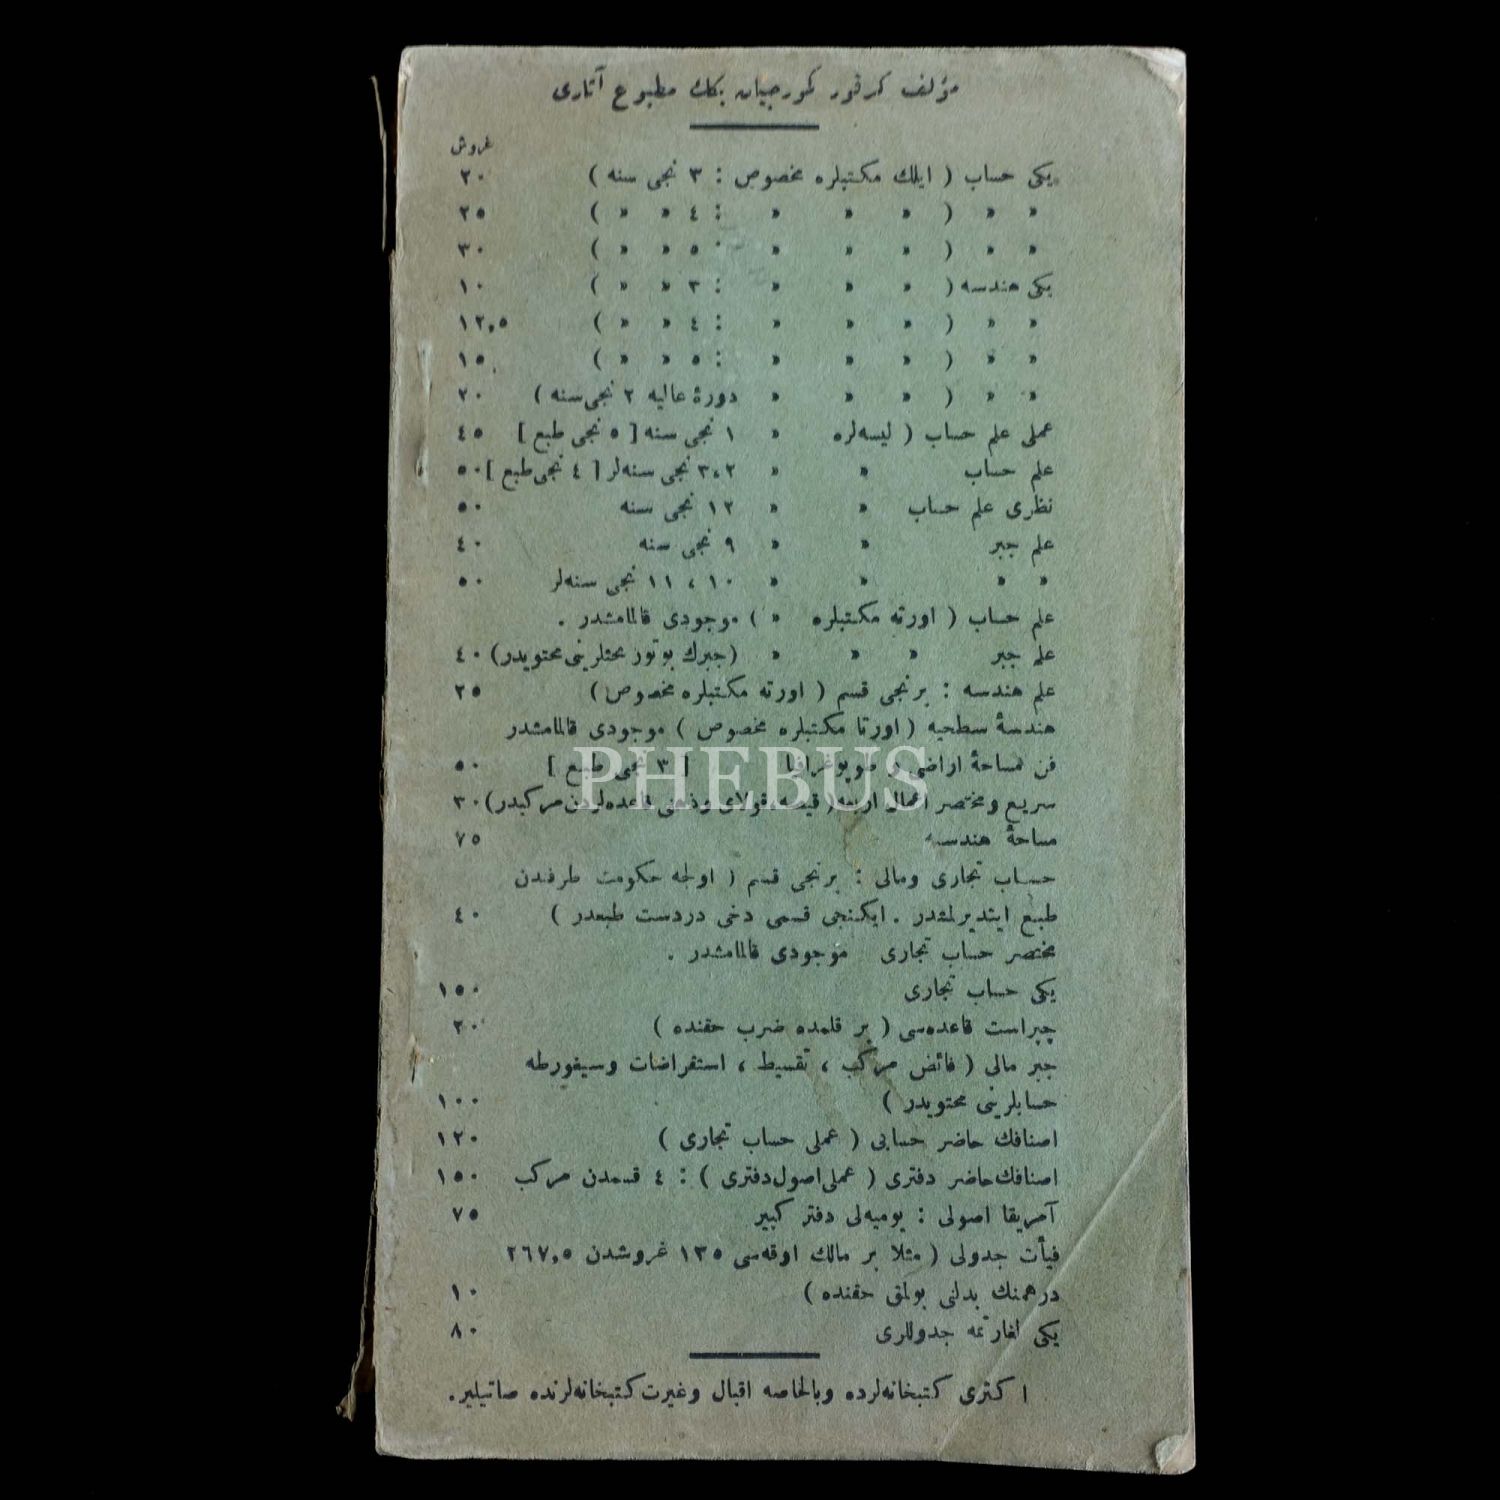 مؤلف كرقور كمورجيان بكك مطبوع آثارى
غروش
يكى حساب ( ايلك مكتبلره مخصوص : ٣ نجى سنه ) ٢٠
» » ( » » » : ٤ » » ) ٢٥
» » ( » » » : ٥ » » ) ٣٠
يكى هندسه ( » » » : ٣ » » ) ١٠
» » ( » » » : ٤ » » ) ١٢,٥
» » ( » » » : ٥ » » ) ١٥
» » ( » » » دورۀ عاليه ٢ نجى سنه ) ٢٠
عملى علم حساب ( ليسه‌لره » ١ نجى سنه [ ٥ نجى طبع ] ٤٥
علم حساب » » ٣،٢ نجى سنه‌لر [ ٤ نجى طبع ] ٥٠
نظرى علم حساب » » ١٢ نجى سنه ٥٠
علم جبر » » ٩ نجى سنه ٤٠
» » » » ١٠ ، ١١ نجى سنه‌لر ٥٠
علم حساب ( اورته مكتبلره » ) موجودى قالمامشدر .
علم جبر » » » (جبرك بوتون بحثلرينى محتويدر) ٤٠
علم هندسه : برنجى قسم ( اورته مكتبلره مخصوص ) ٢٥
هندسۀ سطحيه ( اورتا مكتبلره مخصوص ) موجودى قالمامشدر
فن مساحۀ اراضى و طوپوغرافيا [ ٣ نجى طبع ] ٥٠
سريع و مختصر اعمال اربعه ( قيصه، قولاى و ذهنى قاعده‌لردن مركبدر) ٣٠
مساحۀ هندسه ٧٥
حساب تجارى ومالى : برنجى قسم ( اولجه حكومت طرفندن
طبع ايتديرلمشدر . ايكنجى قسمى دخى دردست طبعدر ) ٤٠
مختصر حساب تجارى موجودى قالمامشدر .
يكى حساب تجارى ١٥٠
چپراست قاعده‌سى ( بر قلمده ضرب حقنده ) ٢٠
جبر مالى ( فائض مركب ، تقسيط ، استقراضات وسيغورطه
حسابلرينى محتويدر ) ١٠٠
اصنافك حاضر حسابى ( عملى حساب تجارى ) ١٢٠
اصنافك حاضر دفترى ( عملى اصول دفترى ) : ٤ قسمدن مركب ١٥٠
آمريقا اصولى : يوميه‌لى دفتر كبير ٧٥
فيأت جدولى ( مثلا بر مالك اوقه‌سى ١٣٥ غروشدن ٢٦٧,٥
درهمنك بدلنى بولمق حقنده ) ١٠
يكى لغارتمه جدوللرى ٨٠
اكثرى كتبخانه‌لرده وبالخاصه اقبال وغيرت كتبخانه‌لرنده صاتيلير.
PHEBUS